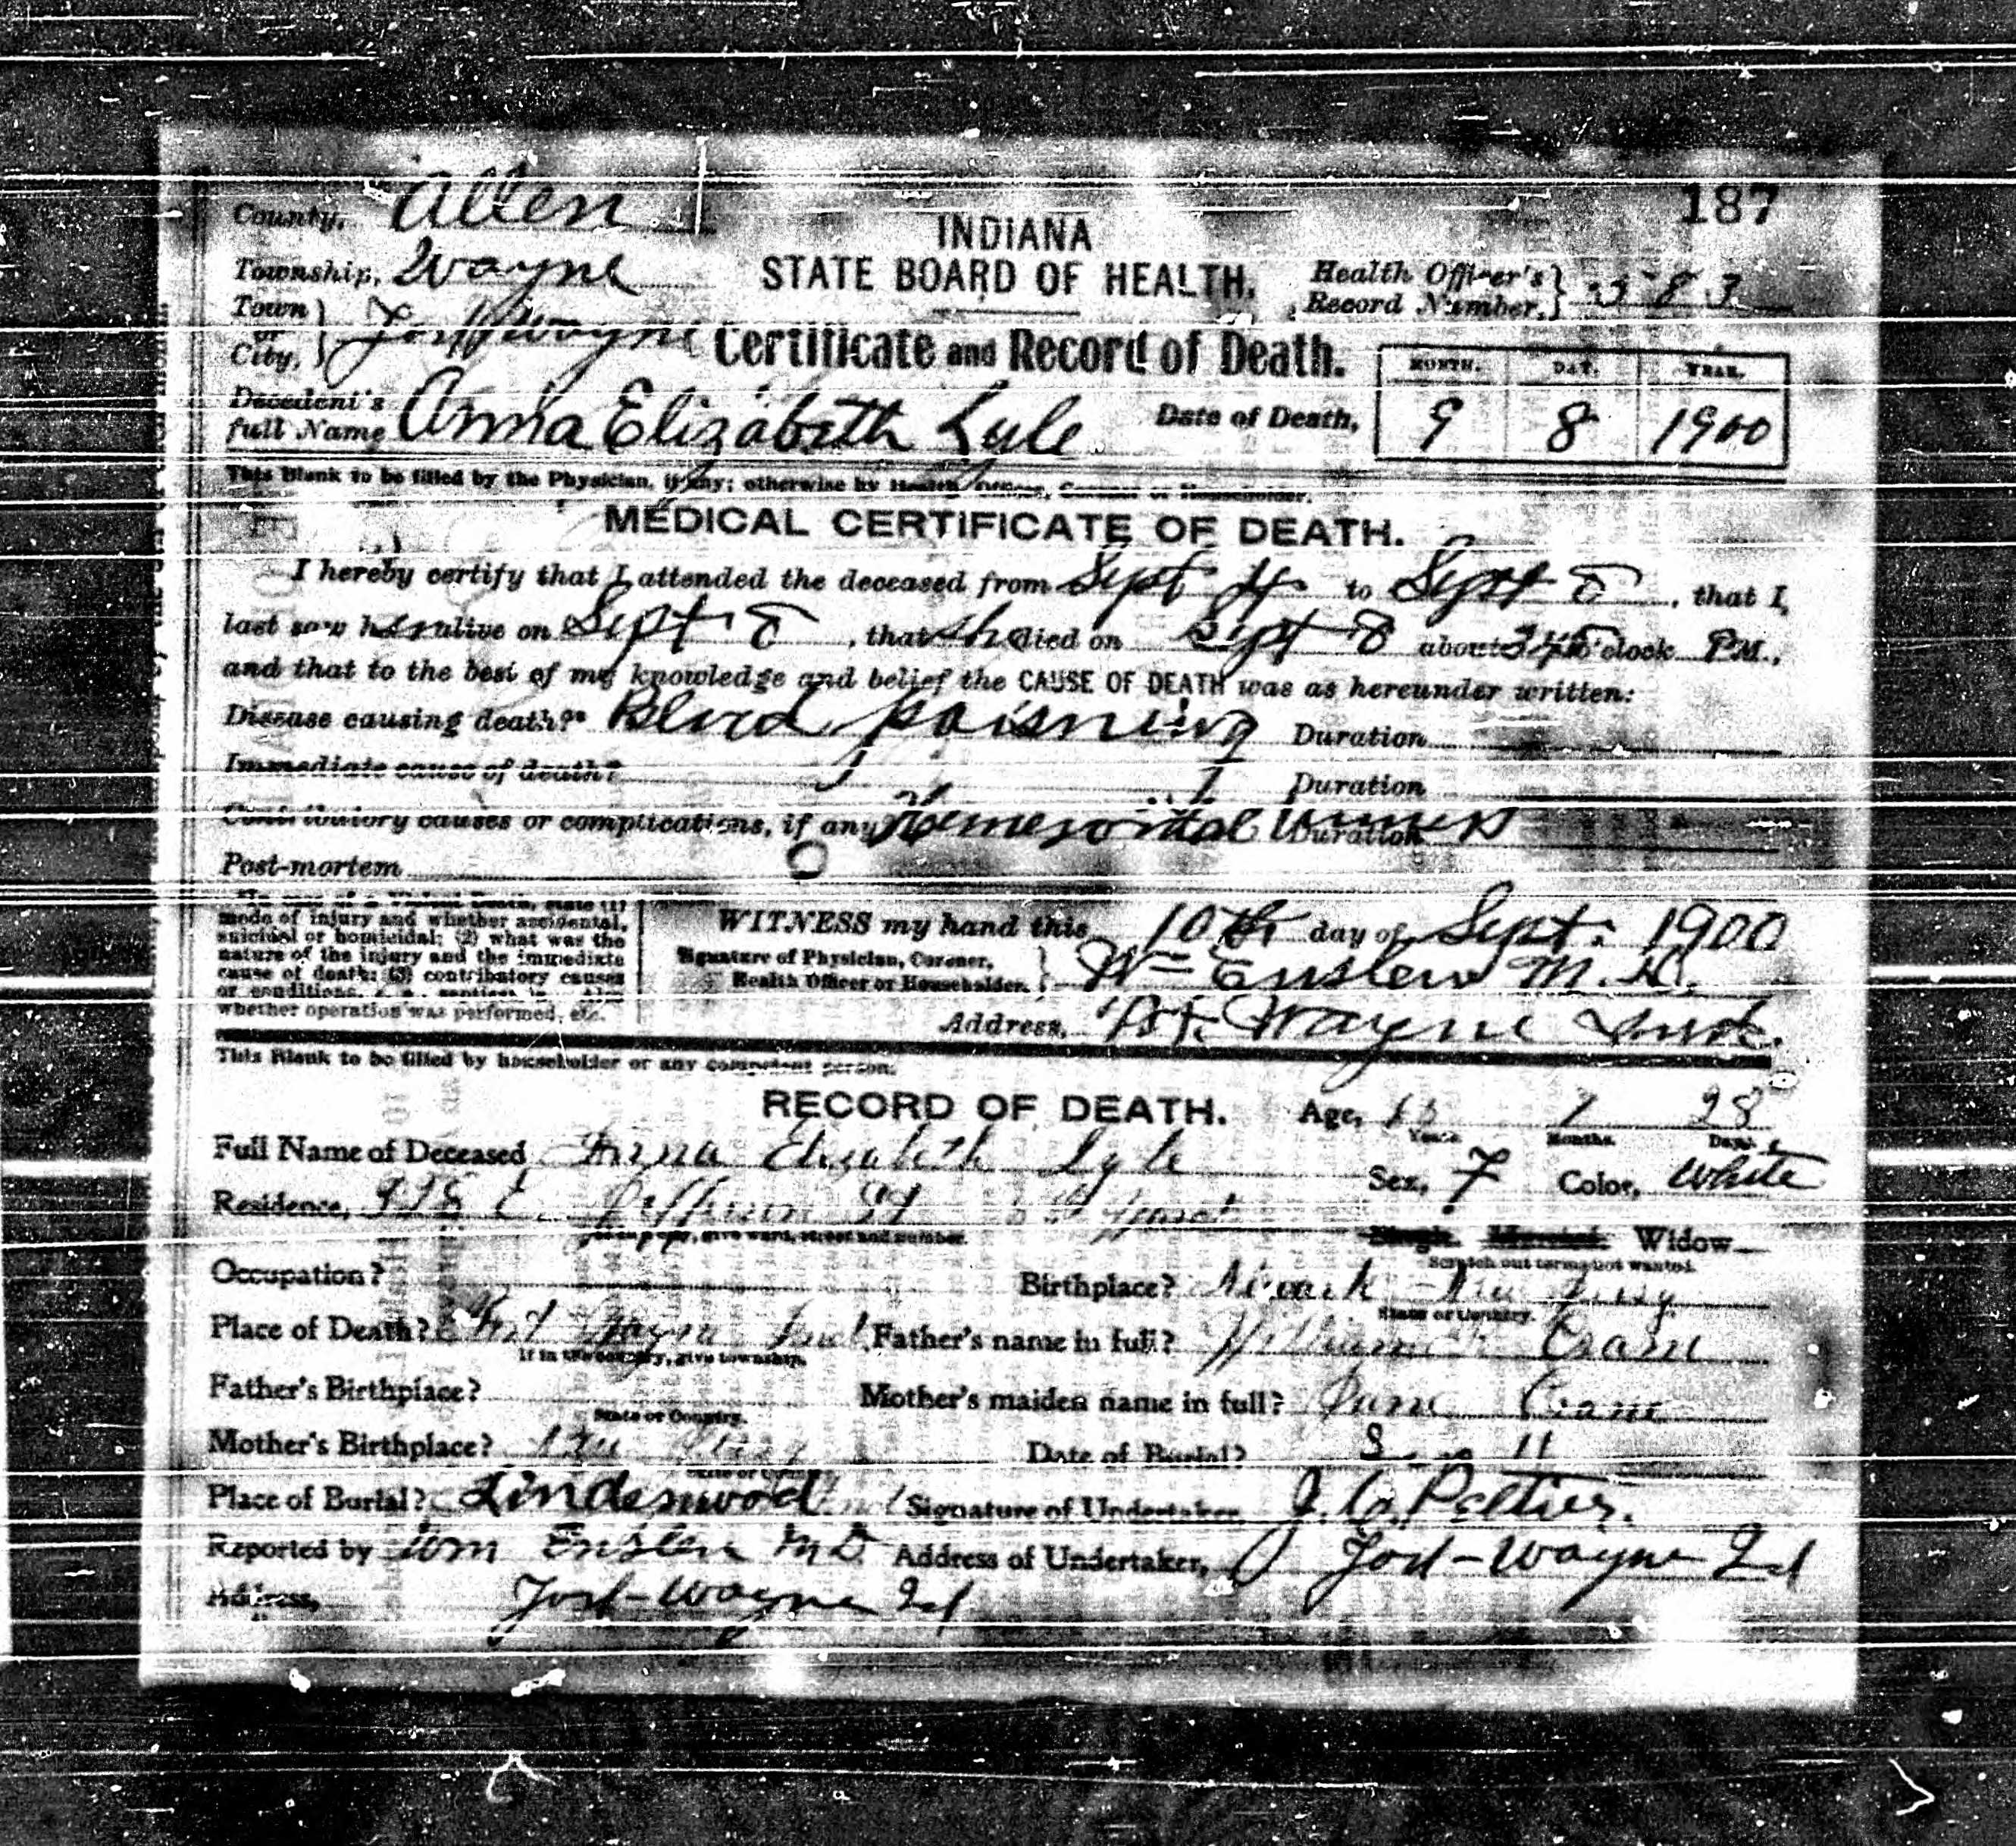 187
County, Allen
INDIANA
Township, Wayne
STATE BOARD OF HEALTH.
Health Officer's Record Number,
Town or City, Fort Wayne
Certificate and Record of Death.
MONTH. DAY. YEAR.
Decedent's full Name Anna Elizabeth Lyle
Date of Death, 9 8 1900
This Blank to be filled by the Physician, if any; otherwise by Health Officer, Coroner or Householder.
MEDICAL CERTIFICATE OF DEATH.
I hereby certify that I attended the deceased from Sept 4 to Sept 8, that I
last saw her alive on Sept 8, that she died on Sept 8 about o'clock P.M.,
and that to the best of my knowledge and belief the CAUSE OF DEATH was as hereunder written:
Disease causing death? Blood poisning Duration
Immediate cause of death? Duration
Contributory causes or complications, if any Duration
Post-mortem
mode of injury and whether accidental,
suicidal or homicidal; (2) what was the
nature of the injury and the immediate
cause of death; (3) contributory causes
or conditions,
whether operation was performed, etc.
WITNESS my hand this 10th day of Sept. 1900
Signature of Physician, Coroner, Health Officer or Householder. Wm Enslen M.D.
Address, Ft. Wayne Ind.
This Blank to be filled by householder or any competent person.
RECORD OF DEATH.
Age, 7 28
Years Months. Days.
Full Name of Deceased Anna Elizabeth Lyle
Sex, F Color, White
Residence, E. Jefferson St
If in city, give ward, street and number.
Single. Married. Widow
Scratch out terms not wanted.
Occupation?
Birthplace? Newark New Jersey
State or Country.
Place of Death? Fort Wayne Ind
If in the country, give township.
Father's name in full? William Crane
Father's Birthplace?
State or Country.
Mother's maiden name in full? Crane
Mother's Birthplace? New Jersey
State or Country.
Date of Burial? 11
Place of Burial? Lindenwood
Signature of Undertaker J. C. Peltier.
Reported by Wm Enslen MD
Address of Undertaker, Fort-Wayne Id
Address, Fort-Wayne Id